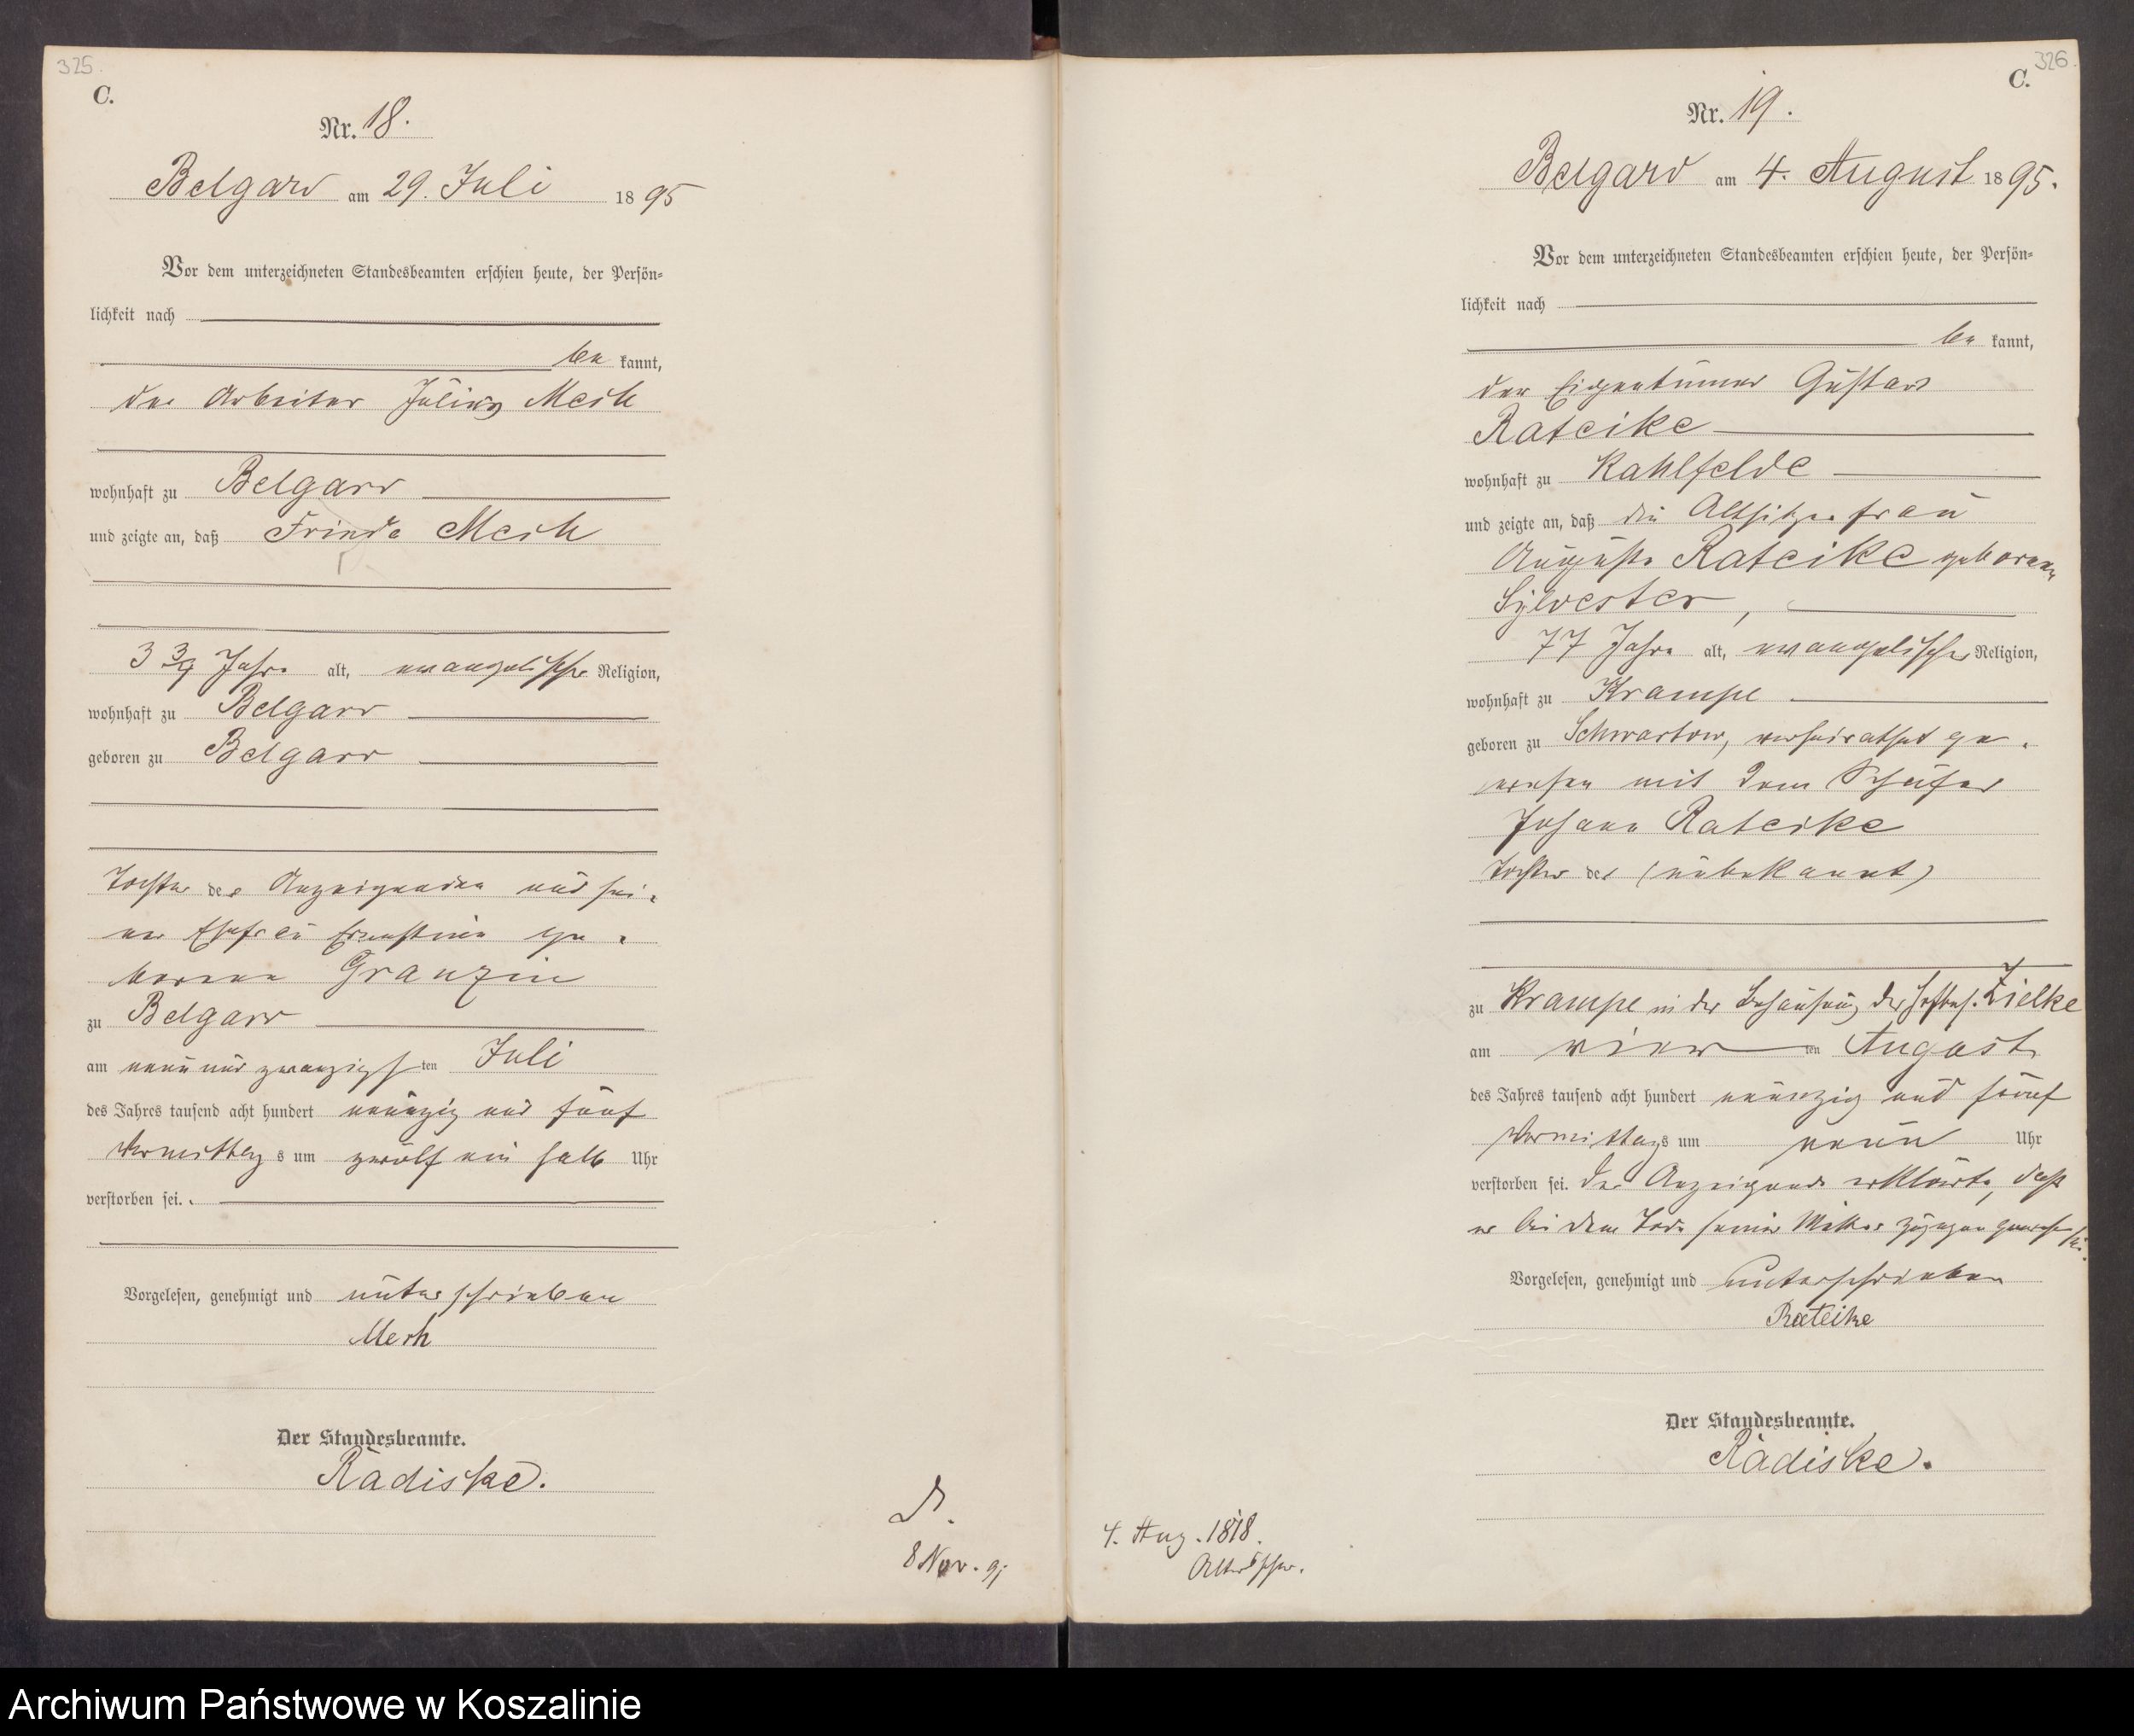 325.
C.
Nr. 18.
Belgard am 29. Juli 1895
Vor dem unterzeichneten Standesbeamten erschien heute, der Persön-
lichkeit nach
be kannt,
der Arbeiter Julius Mesh
wohnhaft zu Belgard
und zeigte an, daß Frieda Mesh
3 3/4 Jahre alt, evangelischer Religion,
wohnhaft zu Belgard
geboren zu Belgard
Tochter des Anzeigenden und sei-
ner Ehefrau Ernestine ge-
borene Granzin
zu Belgard
am neun und zwanzigsten Juli
des Jahres tausend acht hundert neunzig und fünf
Vormittags um zwölf ein halb Uhr
verstorben sei.
Vorgelesen, genehmigt und unterschrieben
Mesh
Der Standesbeamte.
Radiske.
8 Nov. 91
326.
C.
Nr. 19.
Belgard am 4. August 1895.
Vor dem unterzeichneten Standesbeamten erschien heute, der Persön-
lichkeit nach
be kannt,
der Eigentümer Gustav
Rateike
wohnhaft zu Kahlfelde
und zeigte an, daß die Altsitzerfrau
Auguste Rateike geborene
Sylvester,
77 Jahre alt, evangelischer Religion,
wohnhaft zu Krampe
geboren zu Schwartow, verheirathet ge-
wesen mit dem Schäfer
Johann Rateike
Tochter des (unbekannt)
zu Krampe in der Behausung des Hofbes. Zielke
am vierten August
des Jahres tausend acht hundert neunzig und fünf
Vormittags um neun Uhr
verstorben sei. Der Anzeigende erklärte, daß
er bei dem Tode seiner Mutter zugegen gewesen sei.
Vorgelesen, genehmigt und unterschrieben
Rateike
Der Standesbeamte.
Radiske.
4. Aug. 1818.
Altersschw.
Archiwum Państwowe w Koszalinie